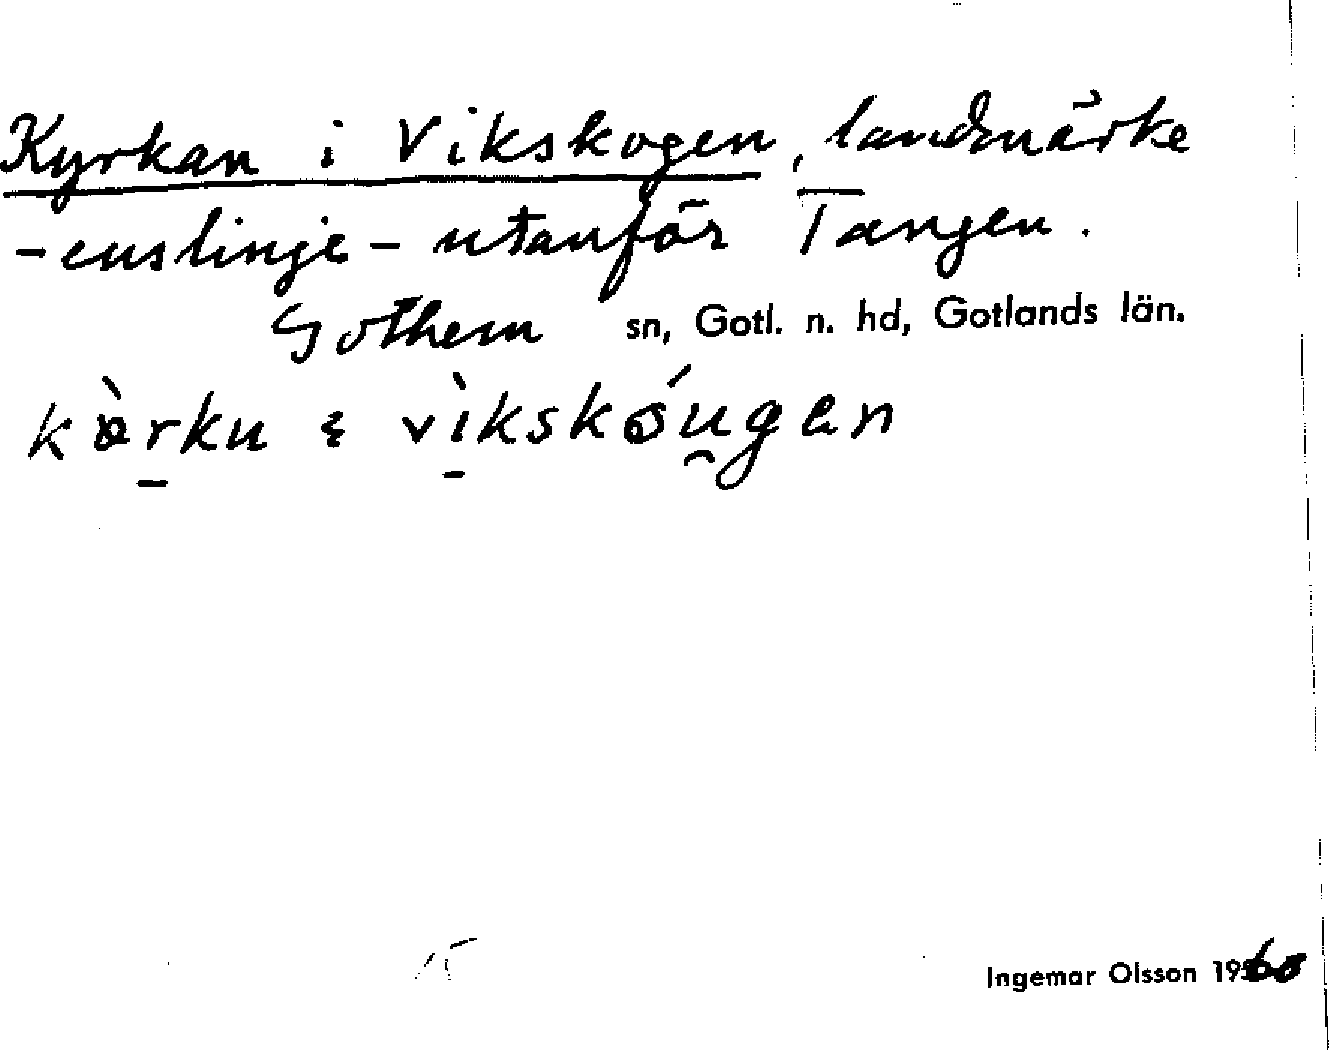 Kyrkan i Vikskogen, landmärke
- enslinje - utanför Tangen.
Gothem sn, Gotl. n. hd, Gotlands län.
kò̵rku ɛ vìkskǿu̯gen
15
Ingemar Olsson 1960